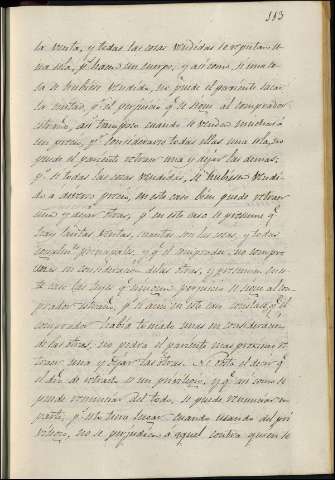 113
la venta, y todas las cosas vendidas se reputan u-
na sola, q.e hacen un cuerpo, y así como, si una co-
sa se hubiese vendido, no puede el pariente sacar
la mitad, p.r el perjuicio q.e se sigue al comprador
estraño, así tampoco cuando se venden muchas á
un precio, p.s considerarse todas ellas una sola, no
puede el pariente retraer una y dejar las demas;
p.o si todas las cosas vendidas, se hubiesen vendi-
do a diverso precio, en este caso bien puede retraer
una y dejar otras, p.s en este caso se presume q.e
son tantas ventas, cuantas son las cosas, y todas
igualm.te principales, y q.e el comprador no compro
unas en consideracion de las otras, y presumen en es-
te caso las leyes q.e ningun perjuicio se sigue al com-
prador estraño, p.o si aun en este caso constase q.e el
comprador habia tomado unas en consideracion
de las otras, no podra el pariente mas proximo re-
traer una y dejar las otras. Ni obsta el decir q.e
el dro. de retracto es un privilegio, y q.e así como se
puede renunciar del todo, se puede renunciar en
parte; p.s esto tiene lugar cuando usando del pri-
vilegio, no se perjudica á aquel contra quien se